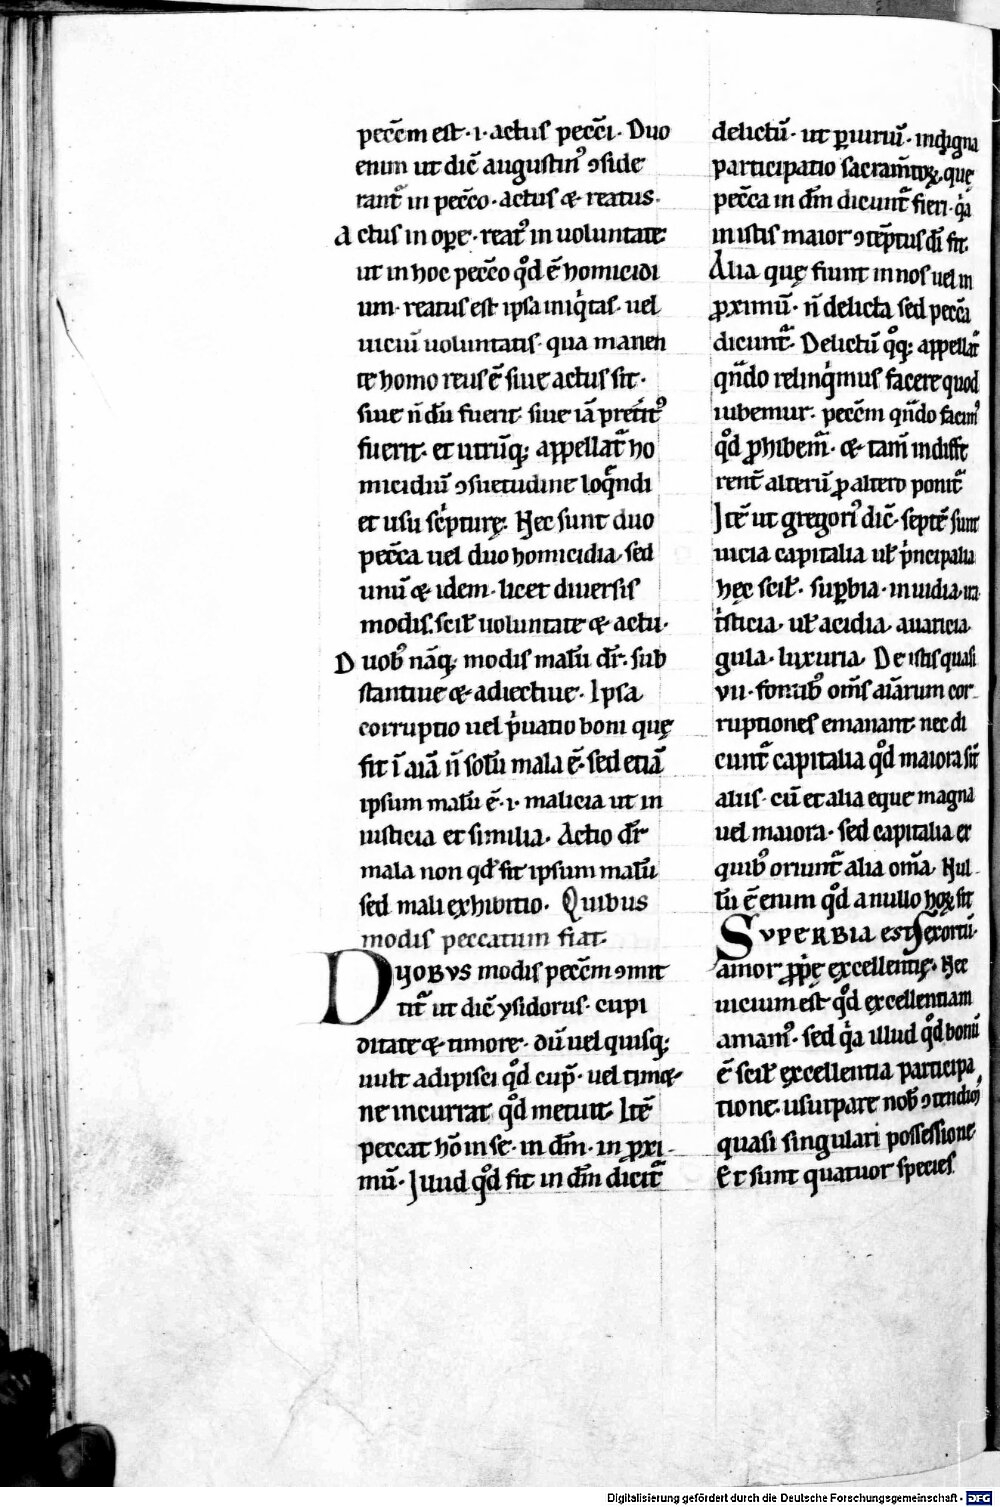 peccm̄ est · i · actus pecc̄i · Duo
enim ut dic̄ augustinꝰ ꝯside
rant᷑ in pecc̄o · actus & reatus ·
Actus in oꝑe · reatꝰ in uoluntate
ut in hoc pecc̄o qͦd ē homicidi
um · reatus est ipsa iniqͥtas · uel
uiciū uoluntatis · qua manen
te homo reus ē siue actus sit ·
siue ñ dū fuerit · siue iā pret͛itꝰ
fuerit · et utrūq; appellat᷑ ho
micidiū ꝯsuetudine loqͣndi
et usu sc͛pturę · Hec sunt duo
pecc̄a uel duo homicidia · sed
unū & idem · licet diuersis
modis · scil̄ uoluntate & actu ·
Duobꝰ nāq; modis malū dr̄ · sub
stantiue & adiectiue · Ipsa
corruptio uel pͥuatio boni quę
fit ī aīa ñ solū mala ē · sed etiā
ipsum malū ē · i · malicia ut in
iusticia et similia · Actio dr̄
mala non qd̄ sit ipsum malū
sed mali exhibitio · Quibus
modis peccatum fiat ·
DUOBVS modis peccm̄ ꝯmit
tit᷑ ut dic̄ ysidorus · cupi
ditate & timore · dū uel quisq;
uult adipisci qͦd cup̄ · uel time
ne incurrat qͦd metuit · Itē
peccat hō in se · in dm̄ · in ꝓxi
mū · Illud qͦd fit in dm̄ dicit᷑
delictū · ut ꝑiuriū · indigna
participatio sacram̄toꝝ · quę
pecc̄a in dm̄ dicunt᷑ fieri · qͥa
in istis maior ꝯtēptus dī fit ·
Alia quę fiunt in nos uel in
ꝓximū · ñ delicta sed pecc̄a
dicunt᷑ · Delictū qͦq; appellat᷑
qn̄do relinqͥmus facere quod
iubemur · peccm̄ qn̄do facimꝰ
qͦd ꝓhibem᷑ · & tam̄ indiffe
rent̄ alterū ꝓ altero ponit᷑
Itē ut gregoriꝰ dic̄ · septē sunt
uicia capitalia ul̄ pͥncipalia
hęc scil̄ · suꝑbia · inuidia · ira
tͥsticia · ul̄ acidia · auaricia
gula · luxuria · De istis quasi
vii · fontibꝰ om̄s aīarum cor
ruptiones emanant · nec di
cunt᷑ capitalia qͦd maiora sīt
aliis · cū et alia eque magna
uel maiora · sed capitalia ex
quibꝰ oriunt᷑ alia om̄a · Nul
lū ē enim qͦd a nullo hoꝝ sit
SVPERBIA est exortū ·
amor ꝓpͥę excellentię · Hec
uicium est qͦd excellentiam
amamꝰ · sed qͥa illud qͦd bonū
ē scil̄ excellentia participa
tione · usurpare nob̄ ꝯtendimꝰ
quasi singulari possessione
Et sunt quatuor species
Digitalisierung gefördert durch die Deutsche Forschungsgemeinschaft - DFG